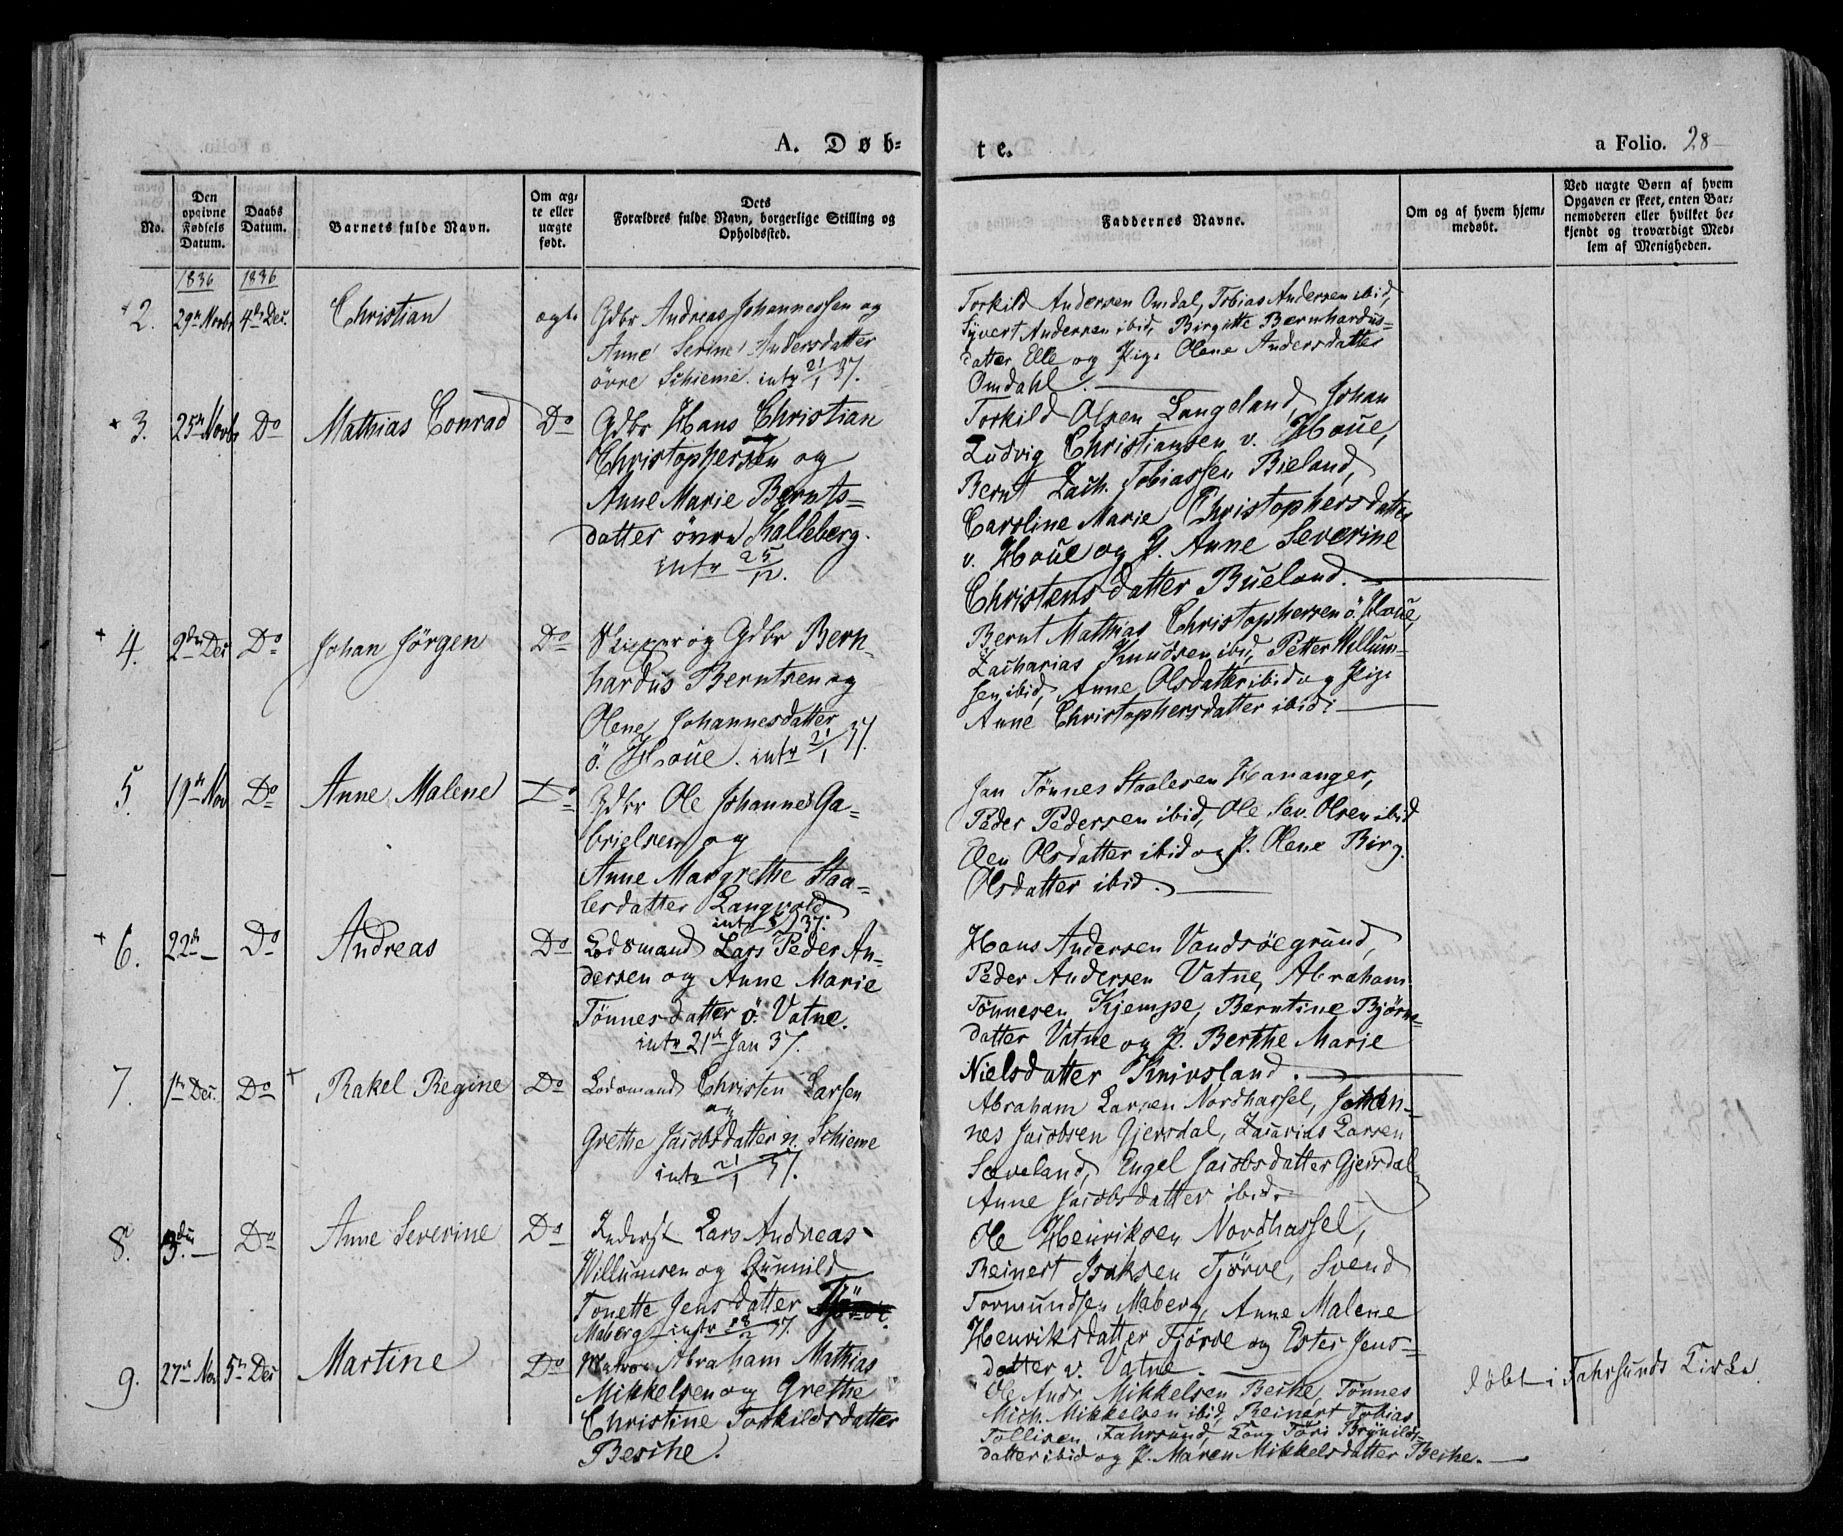 A. Døb-
te.
a Folio. 28
No.
Den opgivne Fødsels Datum.
Daabs Datum.
Barnets fulde Navn.
Om ægte eller uægte født.
Dets Forældres fulde Navn, borgerlige Stilling og Opholdssted.
Faddernes Navne.
Om og af hvem hjemmedøbt.
Ved uægte Børn af hvem Opgaven er skeet, enten Barnemoderen eller hvilket bekjendt og troværdigt Medlem af Menigheden.
1836 1836
2. 29de Novbr 4de Dec. Christian ægte
Gdbr Andreas Johannessen og
Anne Serine Andersdatter
övre Schieme. intr 21/1 37.
Torkild Andersen Omdal, Tobias Andersen ibid,
Syvert Andersen ibid, Birgitte Bernhardus=
datter Elle og Pige Olene Andersdatter
Omdahl.
3. 25de Novbr Do Mathias Conrad Do
Gdbr Hans Christian
Christophersen og
Anne Marie Bernts=
datter övre Kalleberg.
intr 25/12.
Torkild Olsen Langeland, Johan
Ludvig Christiansen v. Houe,
Bernt Zach. Tobiassen Bieland,
Caroline Marie Christophersdatter
v. Houe og P. Anne Severine
Christensdatter Bueland.
4. 2den Dec Do Johan Jörgen Do
Skipper og Gdbr Bern=
hardus Berntsen og
Olene Johannesdatter
ö. Houe. intr 21/1 37.
Bernt Mathias Christophersen ö. Houe,
Zacharias Knudsen ibid, Petter Villum=
sen ibid, Anne Olsdatter ibid og Pige
Anne Christophersdatter ibid.
5 19de Nov Do Anne Malene Do
Gdbr Ole Johannes Ga=
brielsen og
Anne Margrethe Staa=
lesdatter Langvold
Jan Tönnes Staalesen Hananger,
Peder Pedersen ibid, Ole Sev. Olsen ibid
Elen Olsdatter ibid og P. Olene Birg.
Olsdatter ibid.
6. 22de Do Andreas Do
Lodsmand Lars Peder An=
dersen og Anne Marie
Tönnesdatter ö. Vatne.
intr 21de Jan 37.
Hans Andersen Vandsöegrund,
Peder Andersen Vatne, Abraham
Tönnesen Kjempe, Berntine Björns=
datter Vatne og P. Berthe Marie
Nielsdatter Knivsland.
7. 1te Dec. Do Rakel Regine Do
Lodsmand Christen Larsen
og
Grethe Jacobsdatter n. Schieme
intr 21/1 37.
Abraham Larsen Nordhassel, Johan=
nes Jacobsen Gjersdal, Zacarias Larsen
Sæveland, Engel Jacobsdatter Gjersdal
Anne Jacobsdatter ibid.
8. 3die Do Anne Severine Do
Inderst Lars Andreas
Villumsen og Gunnild
Tonette Jensdatter
Maberg intr 18/2 37.
Ole Henriksen Nordhassel,
Reinert Isaksen Tjörve, Svend
Tormundsen Maberg, Anne Malene
Henriksdatter Tjörve og Ester Jens=
datter v. Vatne
9. 27de Nov 5te Dec Martine Do
Matros Abraham Mathias
Mikkelsen og Grethe
Christine Torkildsdatter
Besche.
Ole Andr. Mikkelsen Besche, Tönnes
Mich. Mikkelsen ibid, Reinert Tobias
Tollisen Fahrsund, Tong Töri Brynilds=
datter ibid og P. Maren Mikkelsdatter Besche.
döbt i Fahrsunds Kirke.